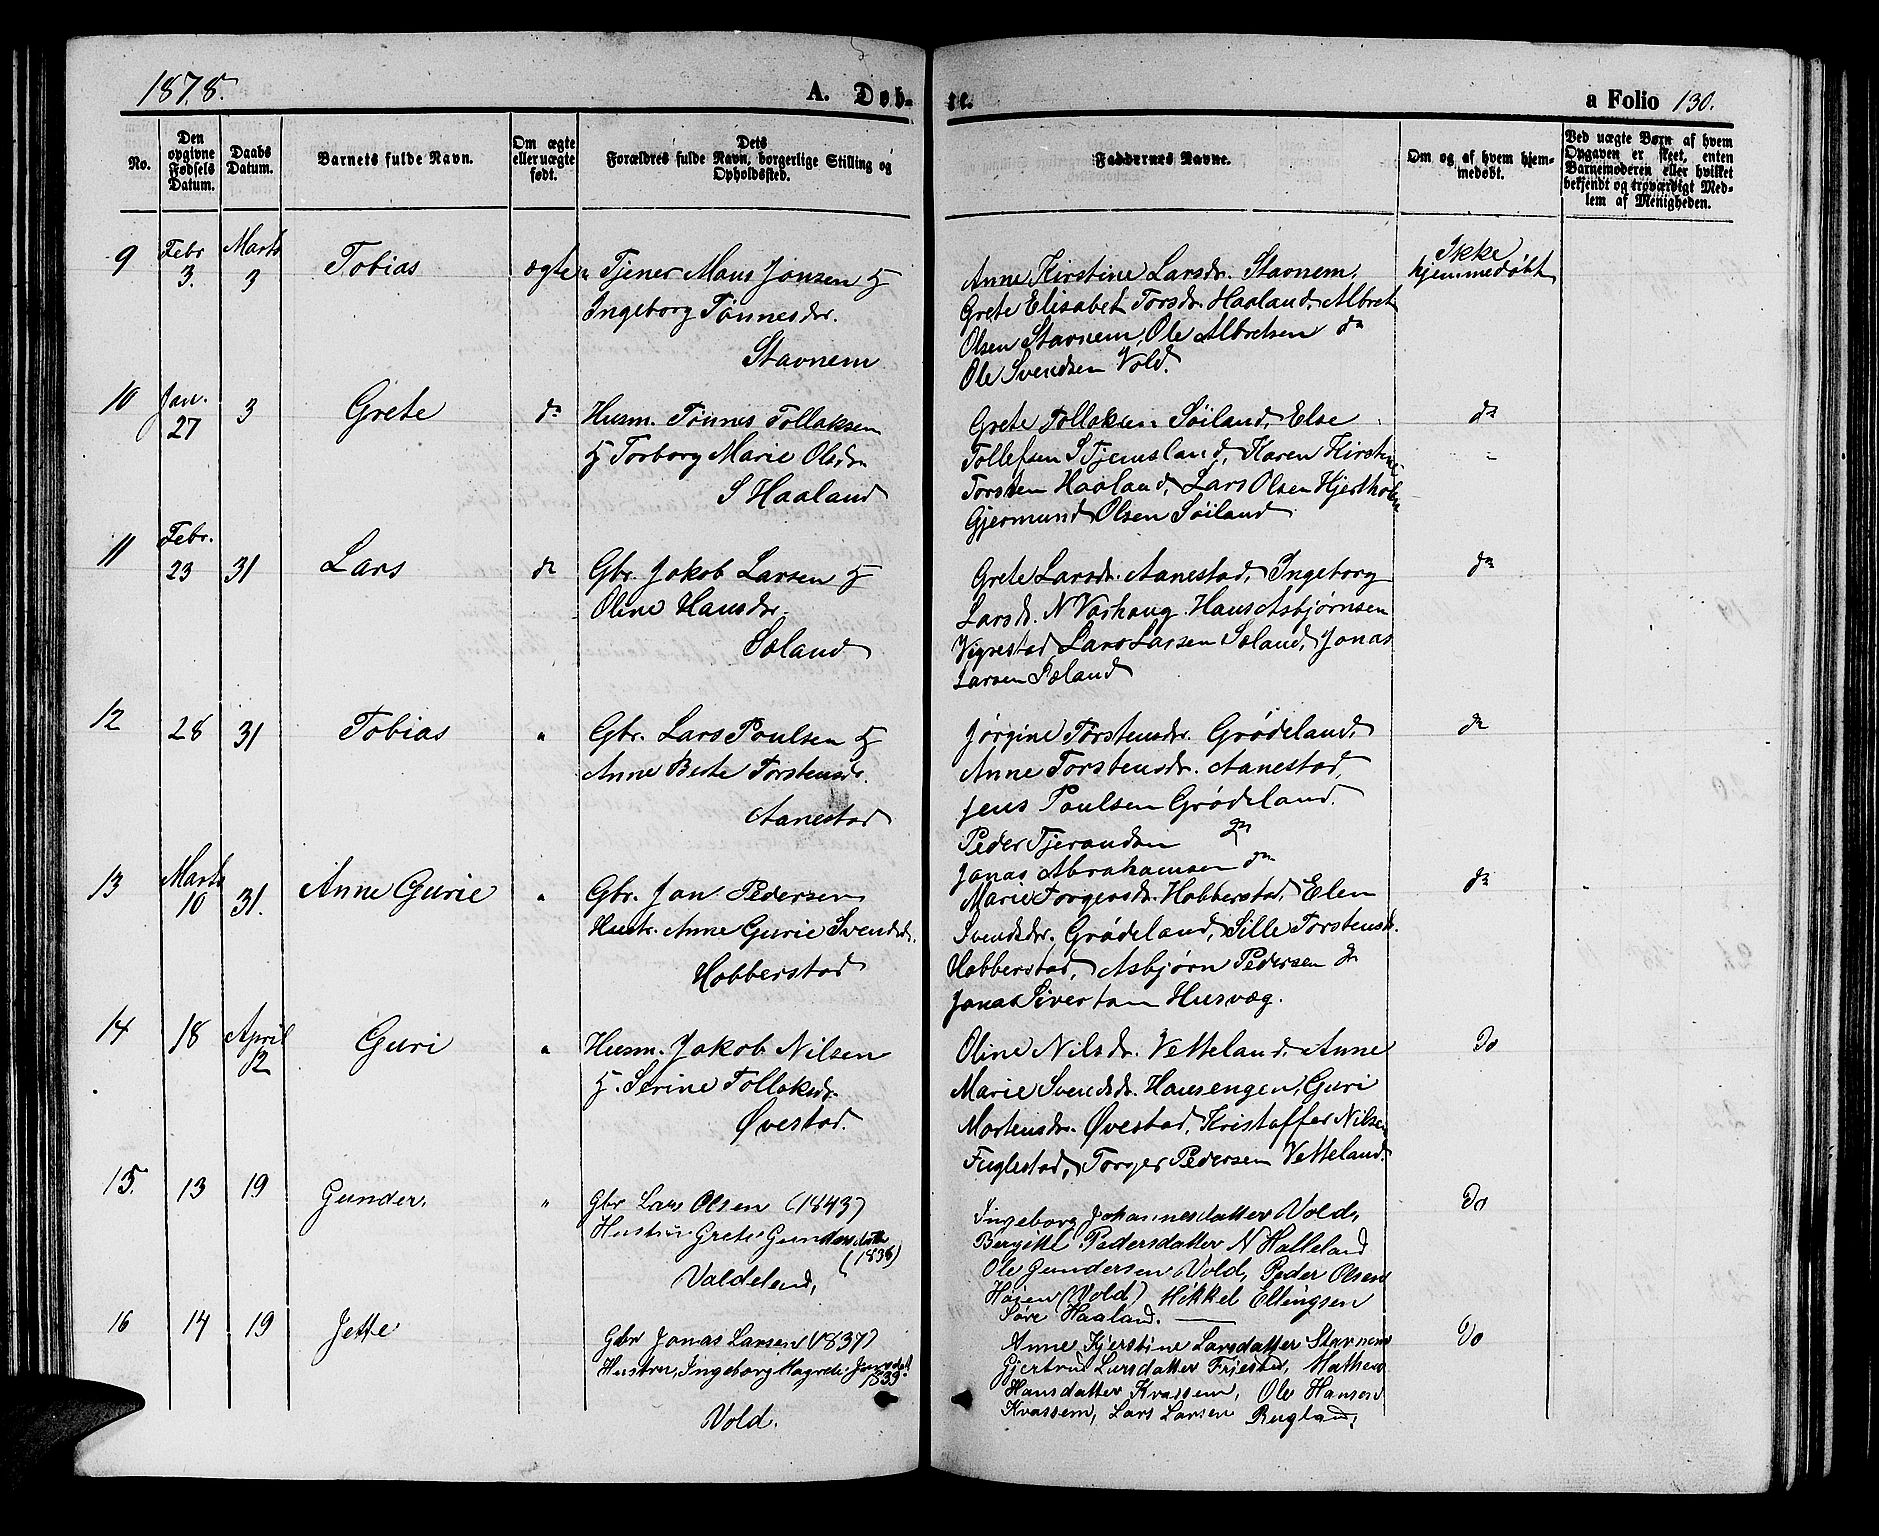 1878.
A. Døb-
te.
a Folio 130.
No.
Den opgivne Fødsels Datum.
Daabs Datum.
Barnets fulde Navn.
Om ægte eller uægte født.
Dets Forældres fulde Navn, borgerlige Stilling og Opholdssted.
Faddernes Navne.
Om og af hvem hjemmedøbt.
Ved uægte Børn af hvem Opgaven er skeet, enten Barnemoderen eller hvilket bekjendt og troværdigt Medlem af Menigheden.
9 Febr 3. Marts 3 Tobias ægte
Tjener Maus Jonsen H
Ingeborg Tønnesdr.
Stavnem
Anne Kirstine Larsdr. Stavnem,
Grete Elisabet Torsdr. Haaland, Albret
Olsen Stavnem, Ole Albretsen do
Ole Svendsen Vold.
Ikke
hjemmedøbt
10 Jan. 27 3 Grete do
Husm. Tønnes Tollaksen
H Torborg Marie Olsdr
S Haaland
Grete Tollaksen Søiland, Else
Tollefsen S Tjemsland, Karen Kirstine
Torsten Haaland, Lars Olsen Hjertholm
Gjermund Olsen Søiland
do
11 Febr. 23 31 Lars do
Gbr. Jakob Larsen H
Oline Hansdr.
Sæland
Grete Larsdr. Aanestad, Ingeborg
Larsdr. N Varhaug. Hans Asbjørnsen
Vigrestad Lars Larsen Sæland, Jonas
Larsen Sæland
do
12 28 31 Tobias "
Gbr. Lars Poulsen H
Anne Berte Torstensdr.
Aanestad
Jørgine Torstensdr. Grødeland,
Anne Torstensdr. Aanestad,
Jens Poulsen Grødeland.
Peder Tjerandsen do
Jonas Abrahamsen do
do
13 Marts 10 31. Anne Gurie "
Gbr. Jan Pedersen
Hustr. Anne Gurie Svendsdr.
Hobberstad
Marie Torgersdr. Hobberstad, Elen
Svendsdr. Grødeland, Sille Torstensdr.
Hobberstad, Asbjørn Pedersen do
Jonas Sivertsen Husvæg.
do
14 18 April 12 Guri "
Husm. Jakob Nilsen
H. Serine Tollaksdr.
Øvestad.
Oline Nilsdr. Vetteland, Anne
Marie Svendsdr. Hansengen, Guri
Mortensdr. Øvestad, Kristoffer Nilsen
Fuglestad, Torger Pedersen Vetteland.
Do
15. 13 19 Gunder. "
Gbr Lars Olsen (1843)
Hustru Grete Gundersdatter
(1838)
Valdeland,
Ingeborg Johannesdatter Vold,
Bergitte Pedersdatter N Halleland
Ole Gundersen Vold, Peder Olsen
Høien (Vold) Mikkel Ellingsen
Søre Haaland.
Do
16 14 19 Jette
Gbr Jonas Larsen (1837)
Hustru, Ingeborg Magrete Jonsdatt.
1839
Vold.
Anne Kjerstine Larsdatter Stavnem
Gjertrud Larsdatter Friestad, Mathea
Hansdatter Kvassem, Ole Hansen
Kvassem, Lars Larsen Rugland,
Do